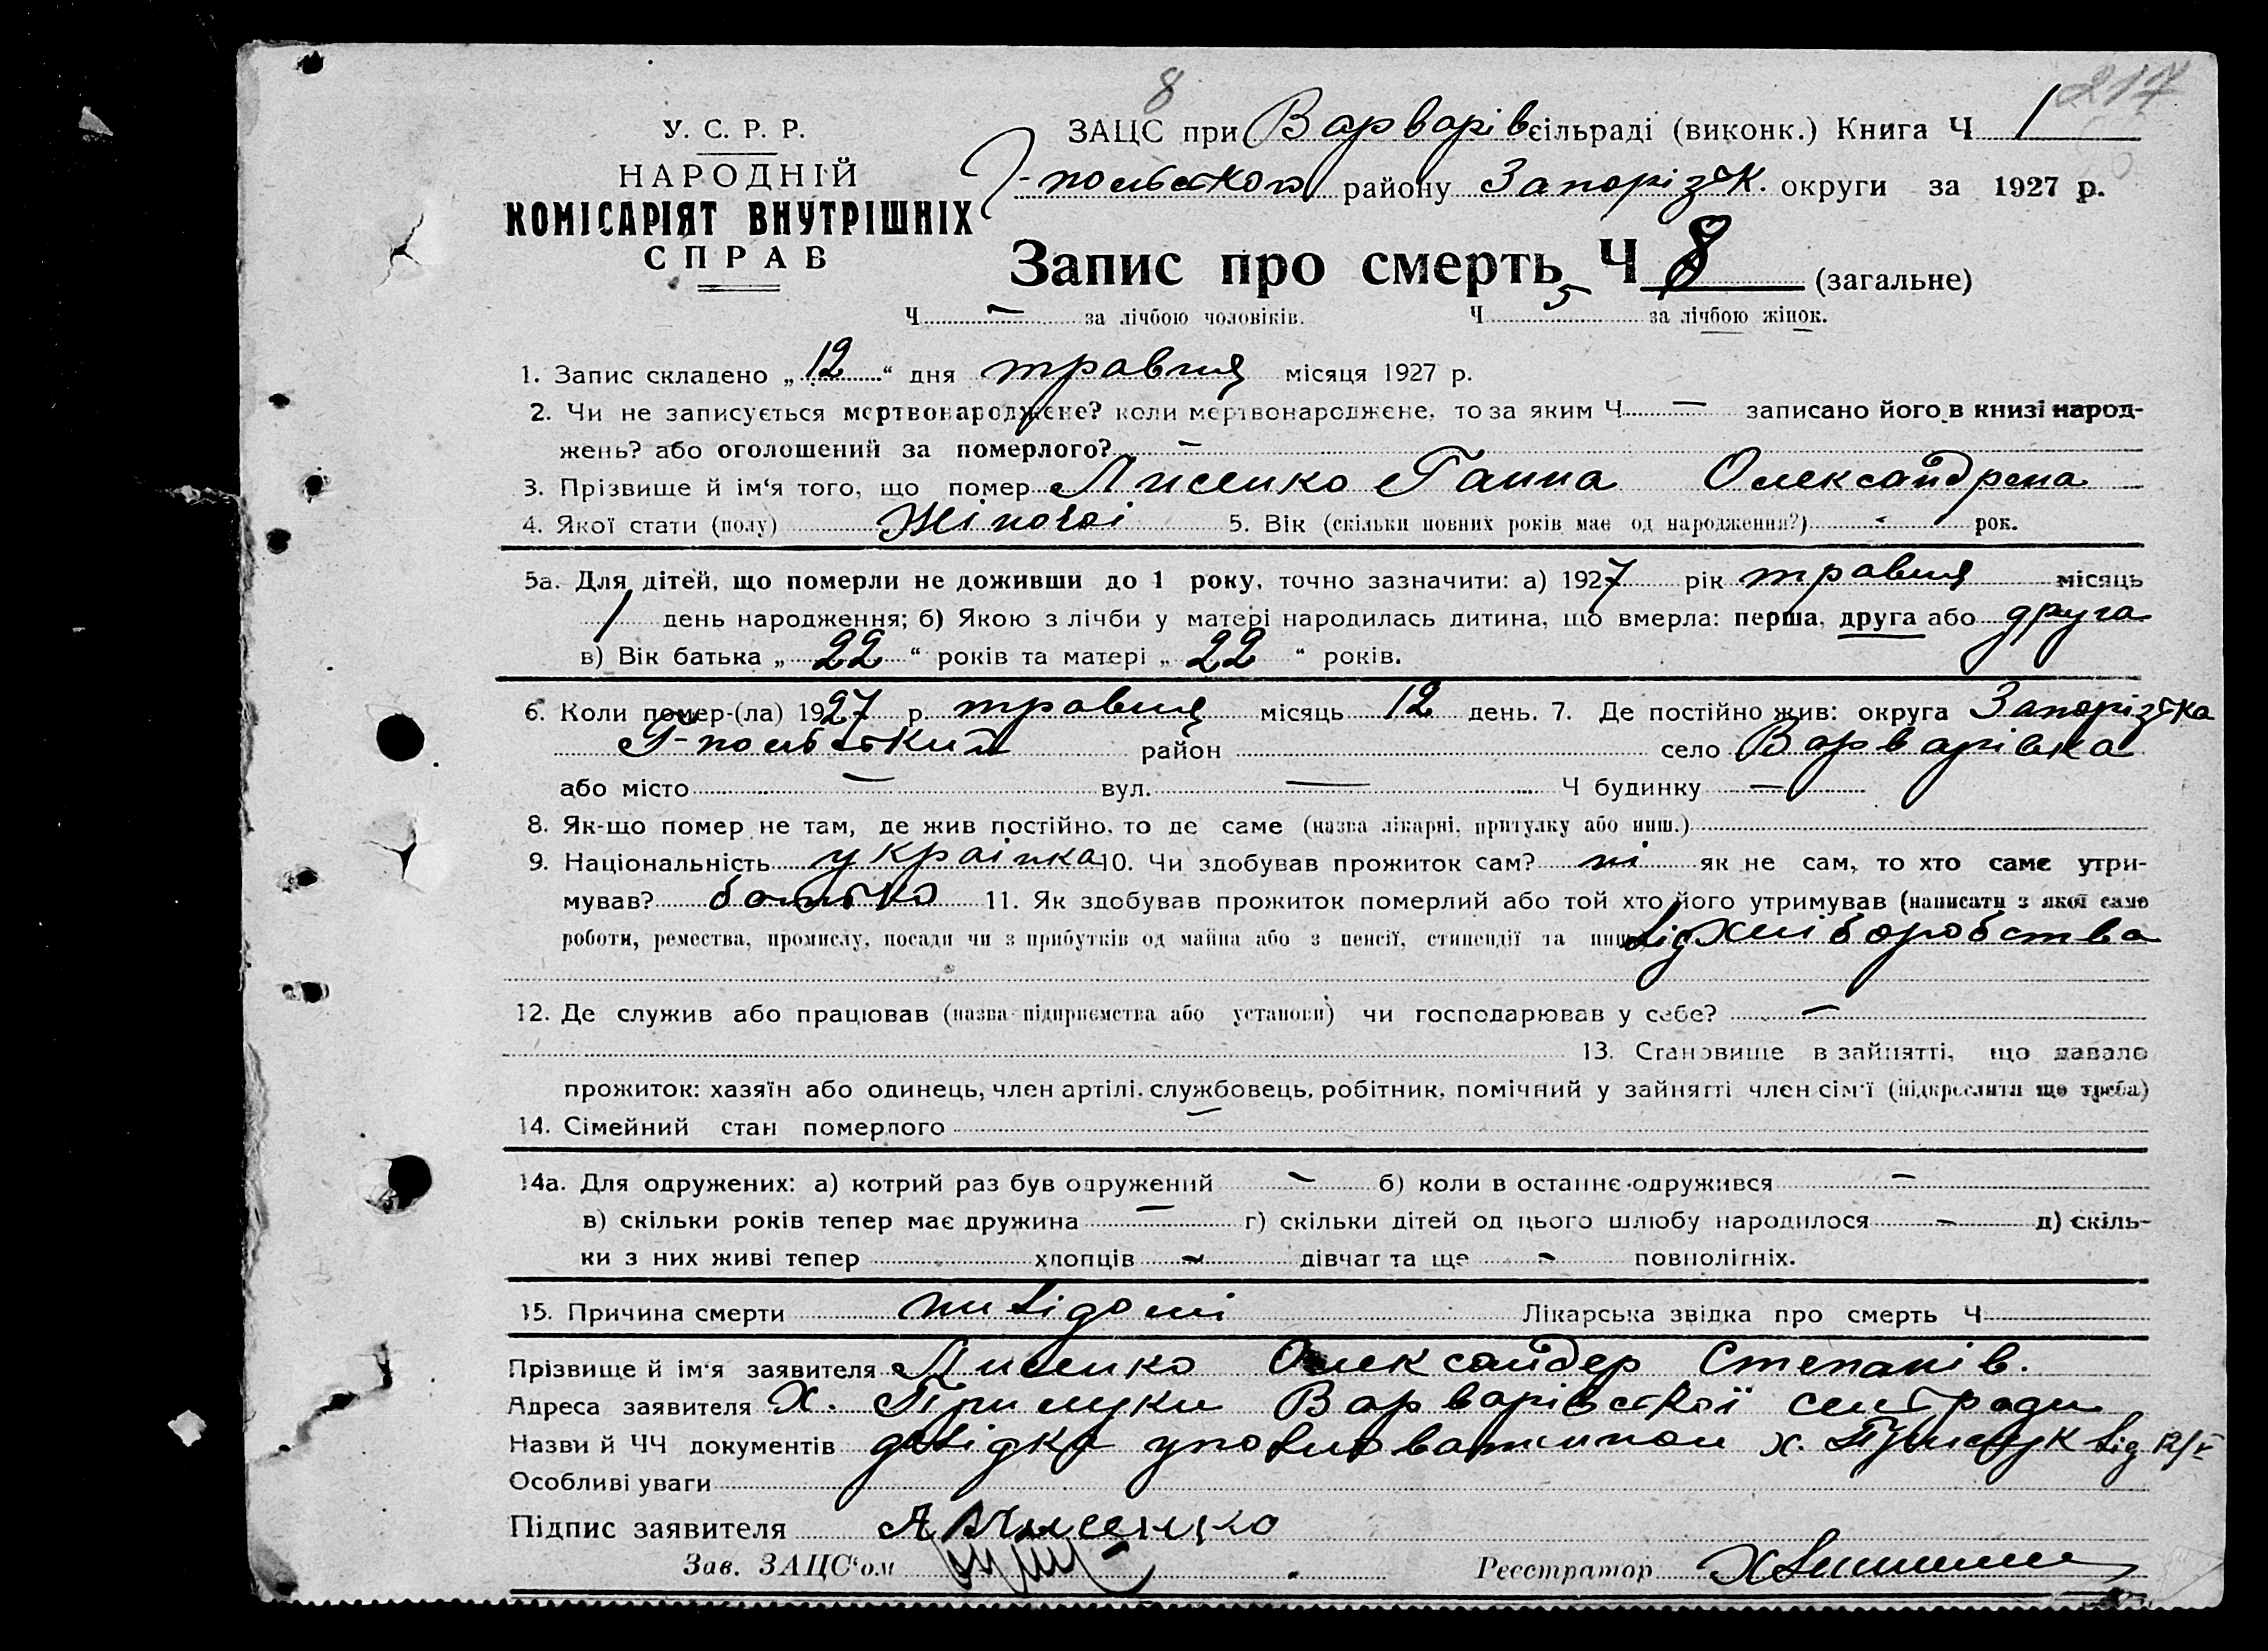 8 217
У. С. Р. Р.
НАРОДНІЙ
КОМІСАРІЯТ ВНУТРІШНІХ
СПРАВ
ЗАЦС при Варварів сільраді (виконк.) Книга Ч 1
Г-польського району Запорізьк. округи за 1927 р.
Запис про смерть Ч 8 (загальне)
Ч – за лічбою чоловіків. Ч 5 за лічбою жінок.
1. Запис складено „ 12 “ дня травня місяця 1927 р.
2. Чи не записується мертвонароджене? коли мертвонароджене, то за яким Ч — записано його в книзі народ-
жень? або оголошений за померлого? –
3. Прізвище й ім‘я того, що помер Лисенко Ганна Олександрена
4. Якої стати (полу) Жіночоі 5. Вік (скільки повних років має од народження?) - рок.
5а. Для дітей, що померли не доживши до 1 року, точно зазначити: а) 1927 рік травня місяць
1 день народження; б) Якою з лічби у матері народилась дитина, що вмерла: перша, друга або друга
в) Вік батька „ 22 “ років та матері „ 22 “ років.
6. Коли помер-(ла) 1927 р. травня місяць 12 день. 7. Де постійно жив: округа Запорізька
Г-польський район село Варварівка
або місто — вул. — Ч будинку —
8. Як-що помер не там, де жив постійно, то де саме (назва лікарні, притулку або инш.)
9. Національність украінка 10. Чи здобував прожиток сам? ні як не сам, то хто саме утри-
мував? батько 11. Як здобував прожиток померлий або той хто його утримував (написати з якої саме
роботи, ремества, промислу, посади чи з прибутків од майна або з пенсії, стипендії та инш. від хліборобства
12. Де служив або працював (назва підприємства або установи) чи господарював у себе? –
13. Становище в зайнятті, що давало
прожиток: хазяїн або одинець, член артілі, службовець, робітник, помічний у зайнятті член сім‘ї (підкреслити що треба)
14. Сімейний стан померлого –
14а. Для одружених: а) котрий раз був одружений – б) коли в останнє одружився –
в) скільки років тепер має дружина — г) скільки дітей од цього шлюбу народилося – д) скіль-
ки з них живі тепер хлопців – дівчат та ще – повнолітніх.
15. Причина смерти Лікарська звідка про смерть Ч
Прізвище й ім‘я заявителя Лисенко Олександер Степанів.
Адреса заявителя Х. Прилуки Варварівської сельради
Назви й ЧЧ документів довідка х. від 12/V
Особливі уваги
Підпис заявителя А Лисенко
Зав. ЗАЦС‘ом Реєстратор